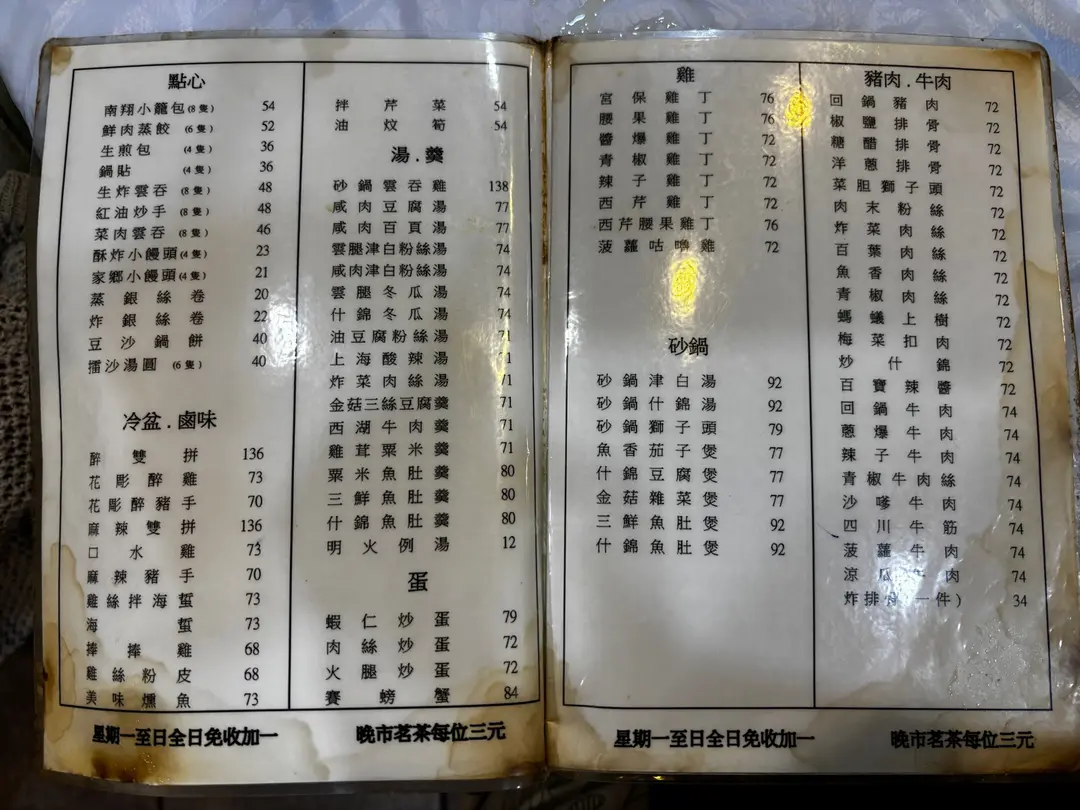 點心
南翔小籠包(8隻) 54
鮮肉蒸餃 (6隻) 52
生煎包 (4隻) 36
鍋貼 (4隻) 36
生炸雲吞 (8隻) 48
紅油炒手 (8隻) 48
菜肉雲吞 (8隻) 46
酥炸小饅頭(4隻) 23
家鄉小饅頭(4隻) 21
蒸銀絲卷 20
炸銀絲卷 22
豆沙鍋餅 40
擂沙湯圓 (6隻) 40
冷盆.鹵味
醉雙拼 136
花彫醉雞 73
花彫醉豬手 70
麻辣雙拼 136
口水雞 73
麻辣豬手 70
雞絲拌海蜇 73
海蜇 73
捧捧雞 68
雞絲粉皮 68
美味燻魚 73
拌芹菜 54
油炆筍 54
湯.羹
砂鍋雲吞雞 138
咸肉豆腐湯 77
咸肉百頁湯 77
雲腿津白粉絲湯 74
咸肉津白粉絲湯 74
雲腿冬瓜湯 74
什錦冬瓜湯 74
油豆腐粉絲湯 71
上海酸辣湯 71
炸菜肉絲湯 71
金菇三絲豆腐羹 71
西湖牛肉羹 71
雞茸粟米羹 71
粟米魚肚羹 80
三鮮魚肚羹 80
什錦魚肚羹 80
明火例湯 12
蛋
蝦仁炒蛋 79
肉絲炒蛋 72
火腿炒蛋 72
賽螃蟹 84
星期一至日全日免收加一
晚市茗茶每位三元
雞
宮保雞丁 76
腰果雞丁 76
醬爆雞丁 72
青椒雞丁 72
辣子雞丁 72
西芹雞丁 72
西芹腰果雞丁 76
菠蘿咕嚕雞 72
砂鍋
砂鍋津白湯 92
砂鍋什錦湯 92
砂鍋獅子頭 79
魚香茄子煲 77
什錦豆腐煲 77
金菇雜菜煲 77
三鮮魚肚煲 92
什錦魚肚煲 92
豬肉.牛肉
回鍋豬肉 72
椒鹽排骨 72
糖醋排骨 72
洋蔥排骨 72
菜胆獅子頭 72
肉末粉絲 72
炸菜肉絲 72
百葉肉絲 72
魚香肉絲 72
青椒肉絲 72
螞蟻上樹 72
梅菜扣肉 72
炒什錦 72
百寶辣醬 72
回鍋牛肉 74
蔥爆牛肉 74
辣子牛肉 74
青椒牛肉絲 74
沙嗲牛肉 74
四川牛筋 74
菠蘿牛肉 74
涼瓜牛肉 74
炸排骨(一件) 34
星期一至日全日免收加一
晚市茗茶每位三元